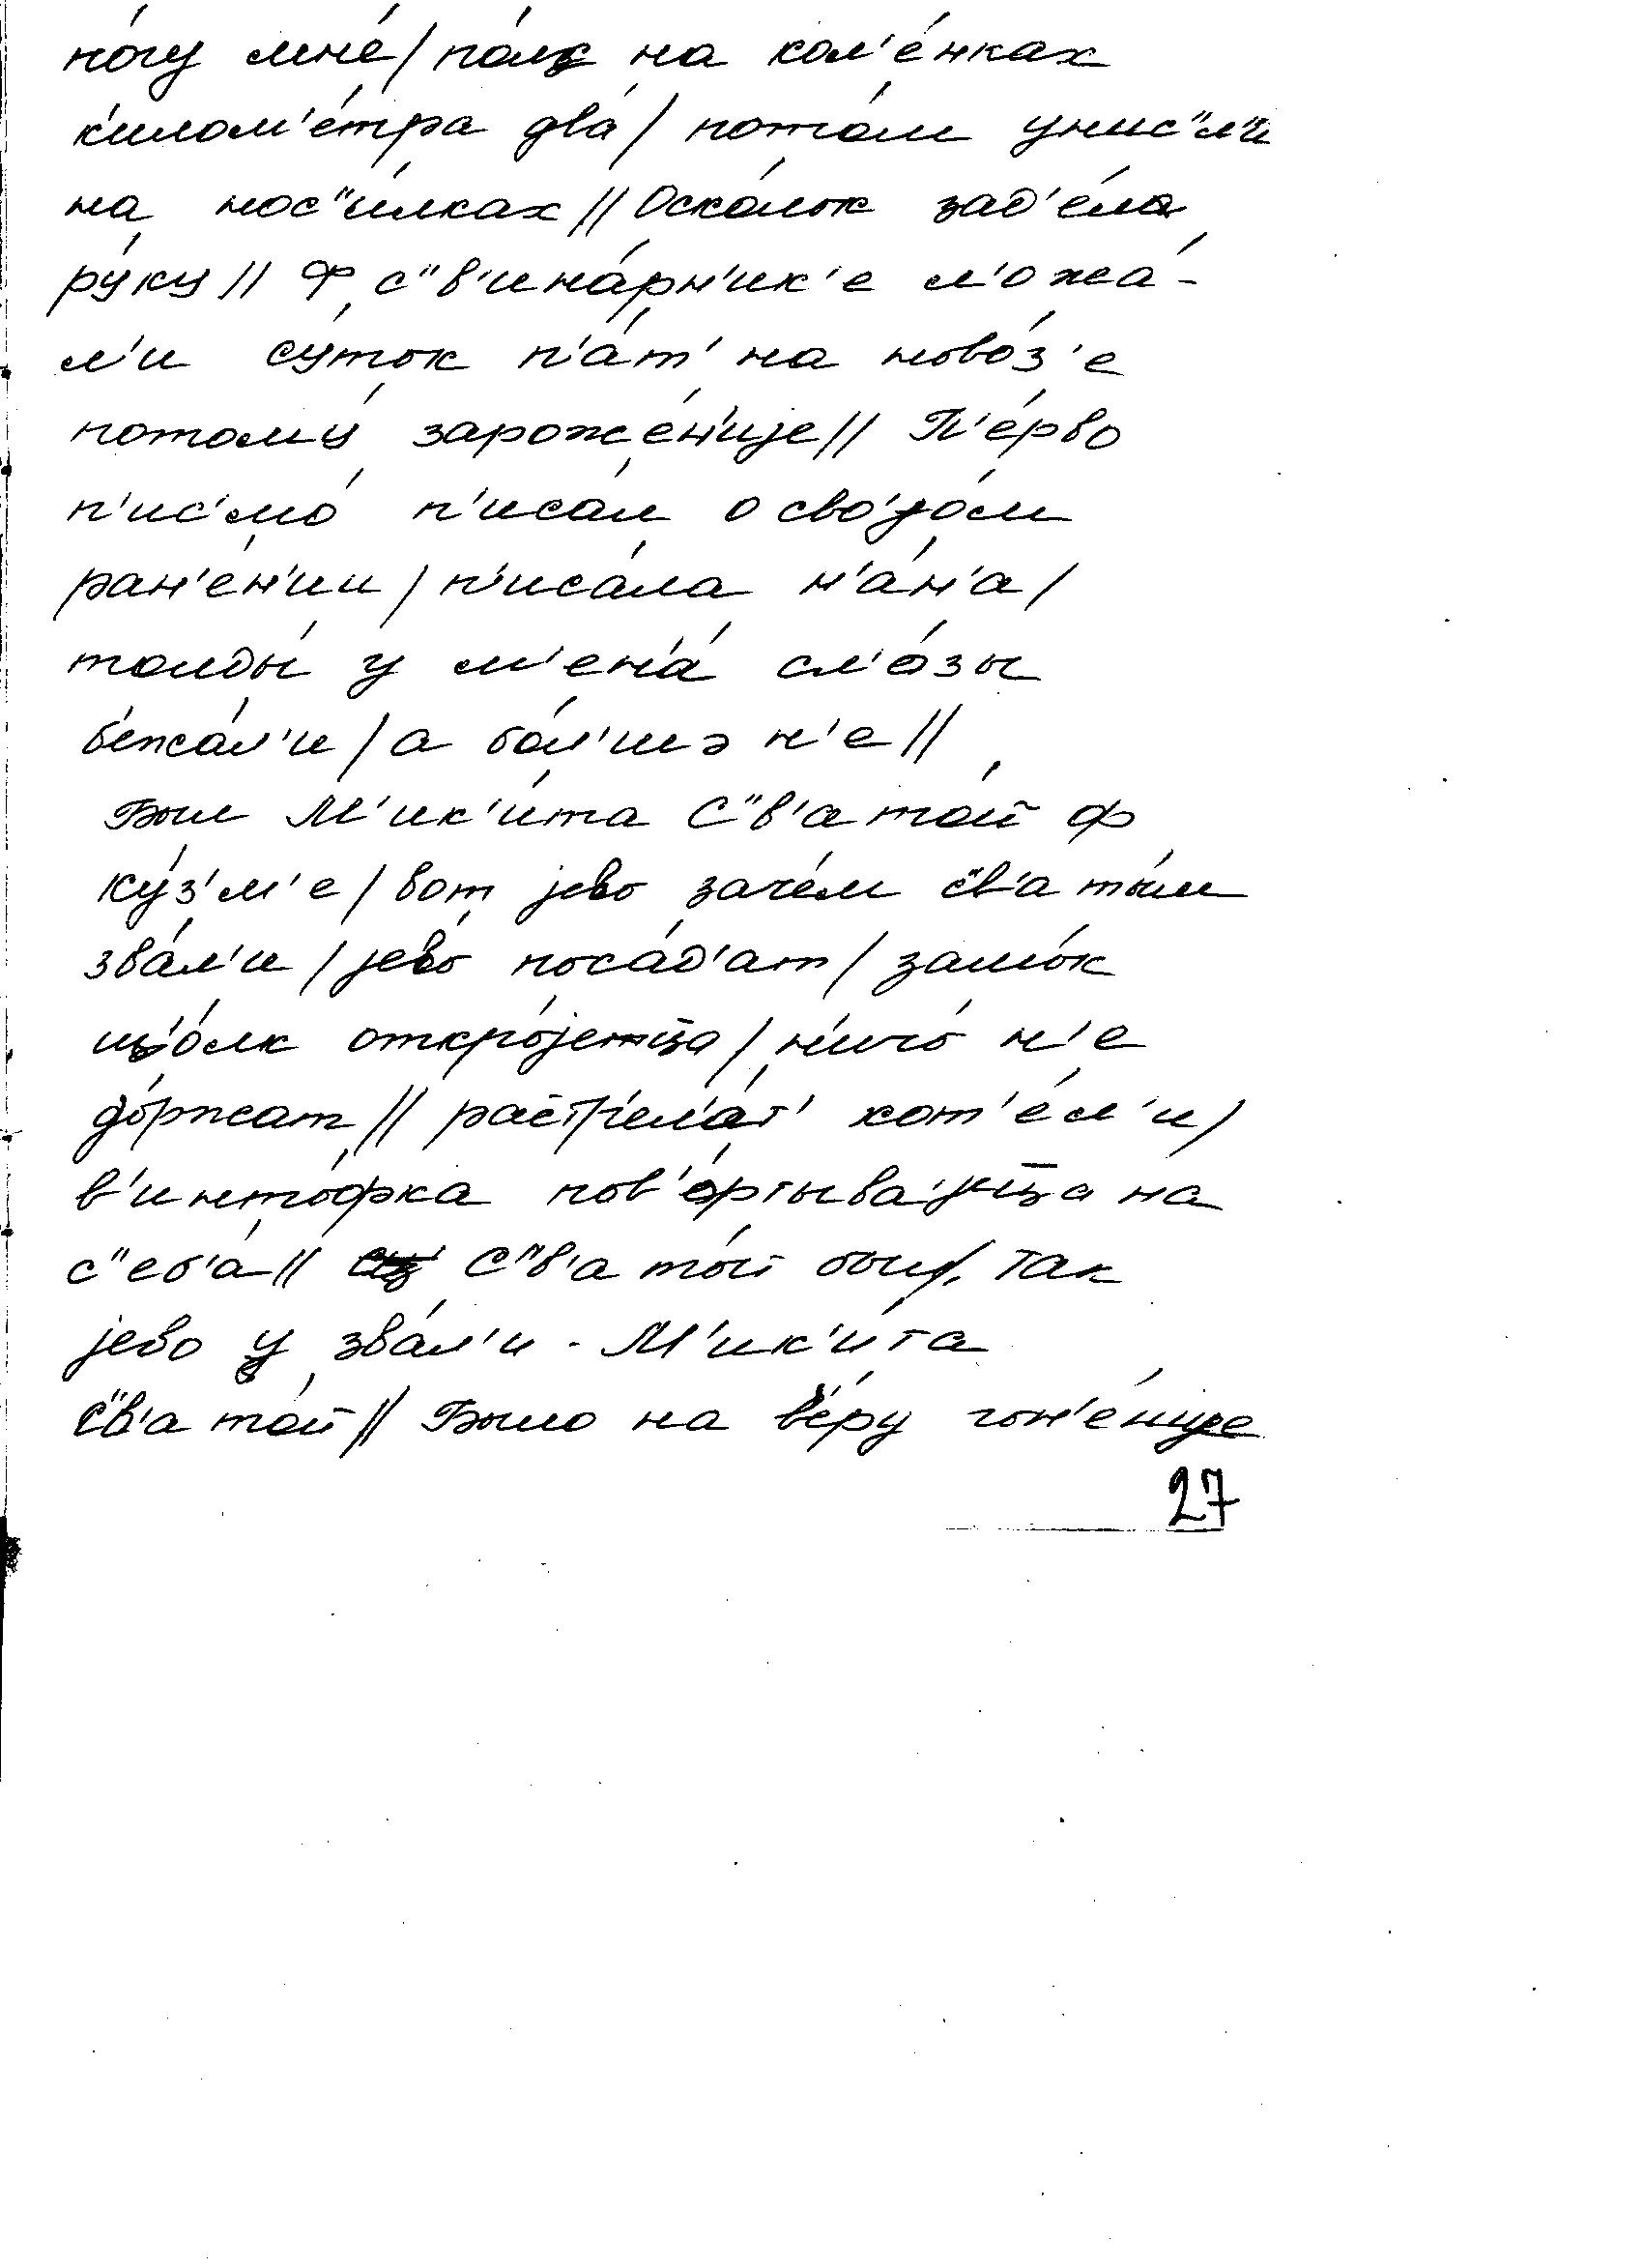 но́гу мне́ / по́лз на кол'е́нках
к'илом'е́тра два́ / пото́м унис"л'и́
на нос"и́лках // Оско́лок зад'е́ла
ру́ку // Ф с"в'ина́рн'ик'е л'ожа́-
л'и су́ток п'а́т' на наво́з'е
потому́ зарож́ен'иjе // П'е́рво
п'ис'мо́ п'иса́л о сво'jо́м
ран'е́н'ии / п'иса́ла н'а́н'а /
толды́ у м'ен'а́ сл'о́зы
б'ежа́л'и / а бо́л'шэ н'е //
Был М'ик'и́та С"в'ато́й ф
ку́з'м'е / вот jево зач́ем с"в'аты́м
зва́л'и / jево́ поса́д'ат / замо́к
що́лк откро́jетца / н'ичо́ н'е
до́ржат // растр'ел'а́т' хот'е́л'и /
в'инто́фка пов'о́ртываjетца на
с"еб'а́ // С"в'ато́й был, так
jево у зва́л'и - М'ик'и́та
С"в'ато́й // Было на в'е́ру гон'е́ниjе
27